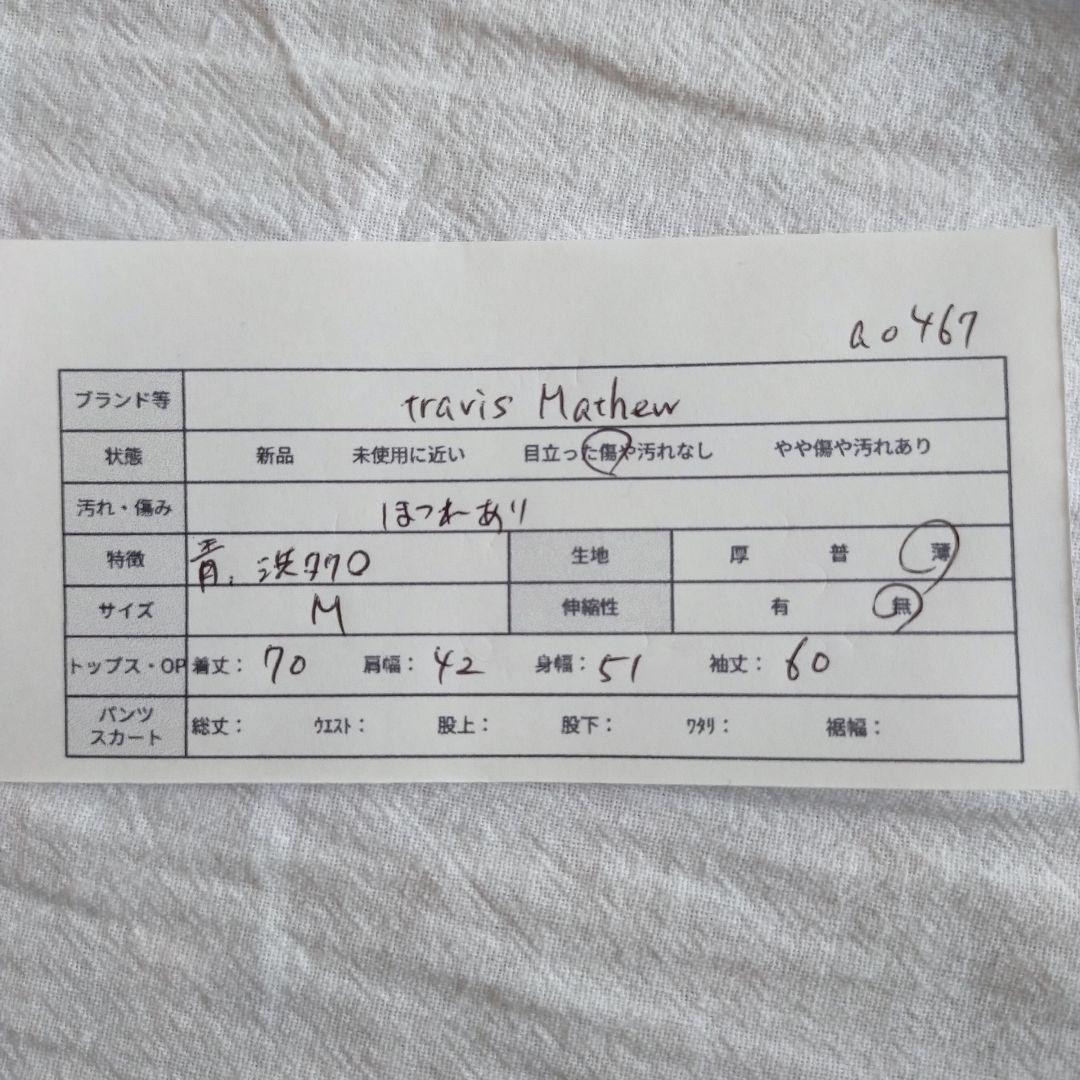 a0467
ブランド等 travis Mathew
状態 新品 未使用に近い 目立った傷や汚れなし やや傷や汚れあり
汚れ・傷み ほつれあり
特徴 青、洗タグ0 生地 厚 普 薄
サイズ M 伸縮性 有 無
トップス・OP 着丈: 70 肩幅: 42 身幅: 51 袖丈: 60
パンツ スカート 総丈: ウエスト: 股上: 股下: ワタリ: 裾幅: